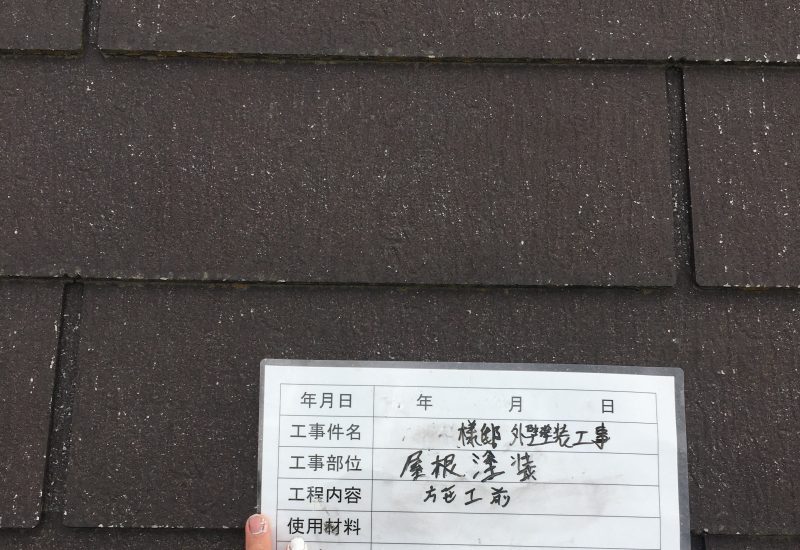 年月日 年 月 日
工事件名 様邸 外壁塗装工事
工事部位 屋根塗装
工程内容 施工前
使用材料